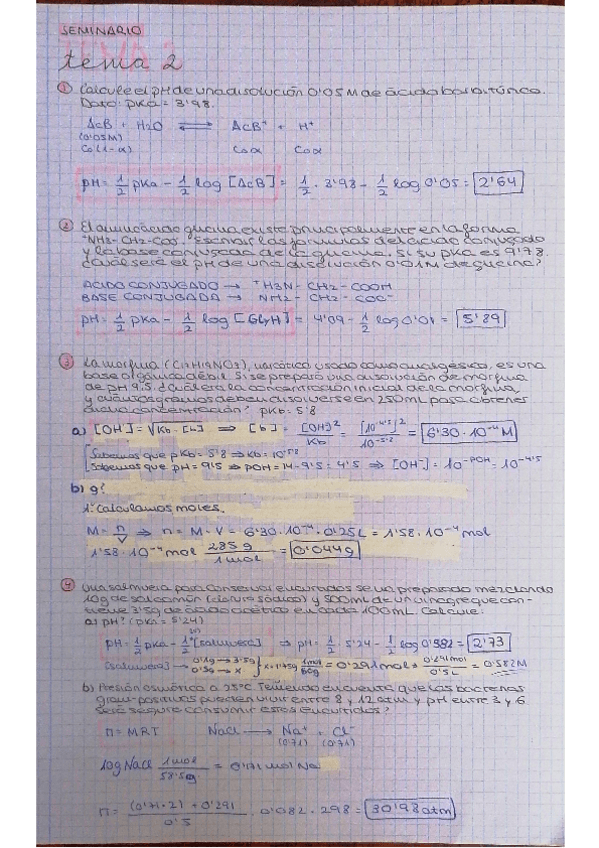 SEMINARIO
TEMA 2
tema 2
① Calcule el pH de una disolución 0'05 M de ácido barbitúrico.
Dato: pKa = 3'98.
AcB + H2O ⇌ AcB⁻ + H⁺
(0'05M)
Co(1-α) Coα Coα
pH = 1/2 pKa - 1/2 log [AcB] = 1/2 · 3'98 - 1/2 log 0'05 = 2'64
② El aminoácido glicina existe principalmente en la forma
⁺NH3-CH2-COO⁻. Escribir las fórmulas del ácido conjugado
y la base conjugada de la glicina. Si su pKa es 9'78.
¿Cuál será el pH de una disolución 0'01M de glicina?
ACIDO CONJUGADO → ⁺H3N-CH2-COOH
BASE CONJUGADA → NH2-CH2-COO⁻
pH = 1/2 pKa - 1/2 log [GLyH] = 4'89 - 1/2 log 0'01 = 5'89
③ La morfina (C17H19NO3), narcótico usado como analgésico, es una
base orgánica débil. Si se preparó una disolución de morfina
de pH 9.5 ¿Cuál era la concentración inicial de la morfina,
y cuántos gramos deben disolverse en 250mL para obtener
dicha concentración? pKb = 5'8
a) [OH⁻] = √Kb·[b] ⇒ [b] = [OH]²/Kb = [10⁻⁴'⁵]²/10⁻⁵'⁸ = 6'30·10⁻⁴ M
Sabemos que pKb = 5'8 ⇒ Kb = 10⁻⁵'⁸
Sabemos que pH = 9'5 ⇒ pOH = 14-9'5 = 4'5 ⇒ [OH⁻] = 10⁻ᵖᴼᴴ = 10⁻⁴'⁵
b) g?
1º Calculamos moles.
M = n/V ⇒ n = M·V = 6'30·10⁻⁴·0'25L = 1'58·10⁻⁴ mol
1'58·10⁻⁴ mol 285g/1mol = 0'044g
④ Una salmuera para conservar encurtidos se ha preparado mezclando
10g de sal común (cloruro sódico) y 500mL de un vinagre que con-
tiene 3'5g de ácido acético en cada 100mL. Calcule:
a) pH? (pKa = 5'24)
pH = 1/2 pKa - 1/2 [salmuera] ⇒ pH = 1/2 · 5'24 - 1/2 log 0'582 = 2'73
1mol/60g = 0'291mol ⇒ 0'291mol/0'5L = 0'582M
b) Presión osmótica a 25ºC. Teniendo en cuenta que las bacterias
gram-positivas pueden vivir entre 8 y 12 atm y pH entre 3 y 6
¿Será seguro consumir estos encurtidos?
Π = MRT NaCl → Na⁺ + Cl⁻
(0'171) (0'171)
10g NaCl 1mol/58'5g = 0'171mol Na
Π = (0'171·2)+0'291/0'5 · 0'082 · 298 = 30'93 atm